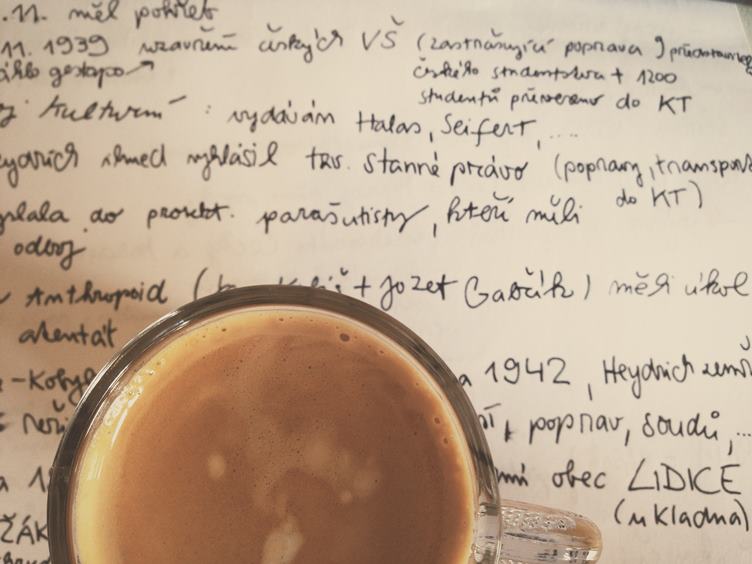 .11. měl pohřeb
11. 1939 uzavření českých VŠ (zastrašující poprava 9
gestapo českého studentstva + 1200
studentů převezeno do KT
kulturní : vydávám Halas, Seifert, ....
ihned vyhlásil tzv. stanné právo (popravy, transpor
do KT)
do protekt. parašutisty, kteří měli
odboj
Anthropoid ( + Jozef Gabčík) měli úkol
atentát
-Kobyl 1942, Heydrich zem
poprav, soudů, ...
obec LIDICE
(u Kladna)
ŽÁK